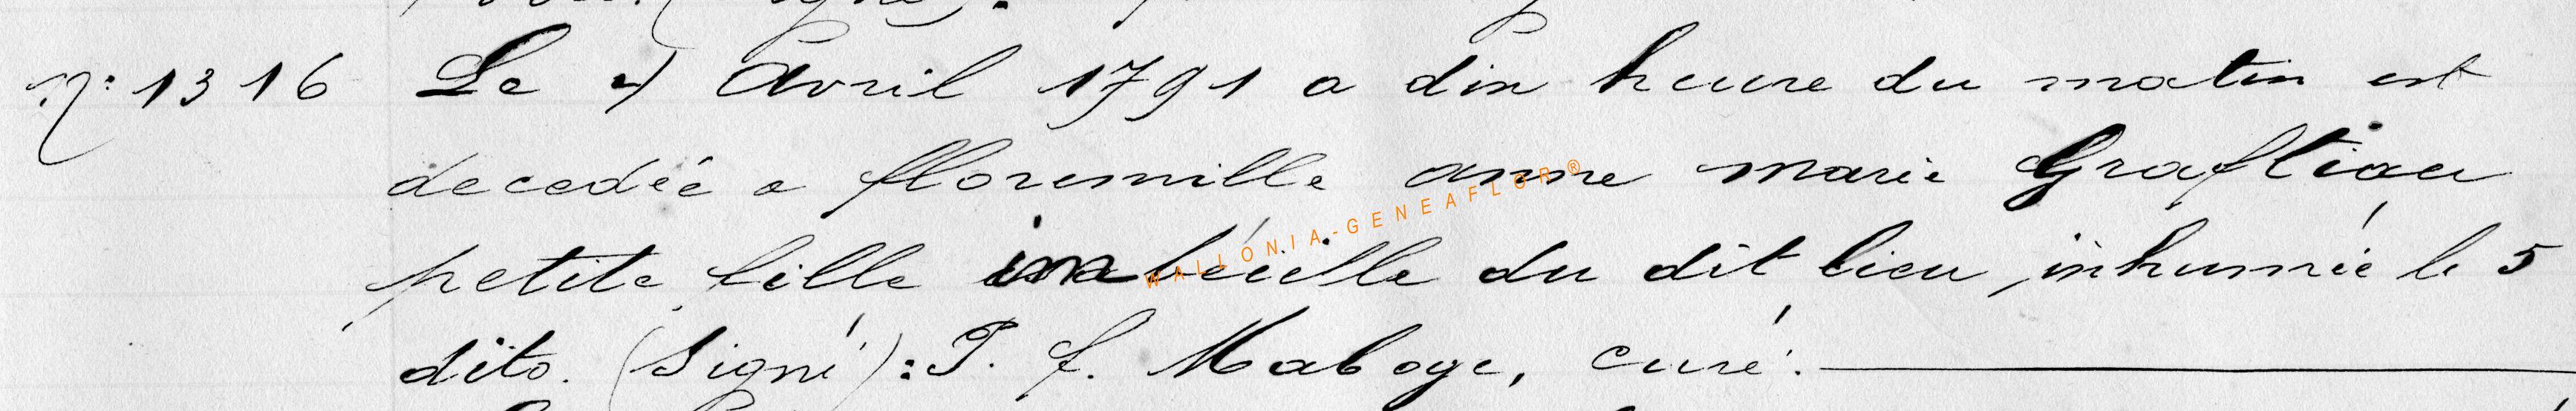 n: 1316 Le 4 avril 1791 a dix heure du matin est
decedée a florenville anne marie Graftiau
petite fille imbécille du dit lieu, inhumée le 5
dito. (Signé): P. f. Maboge, curé.
WALLONIA-GENEAFLOR®